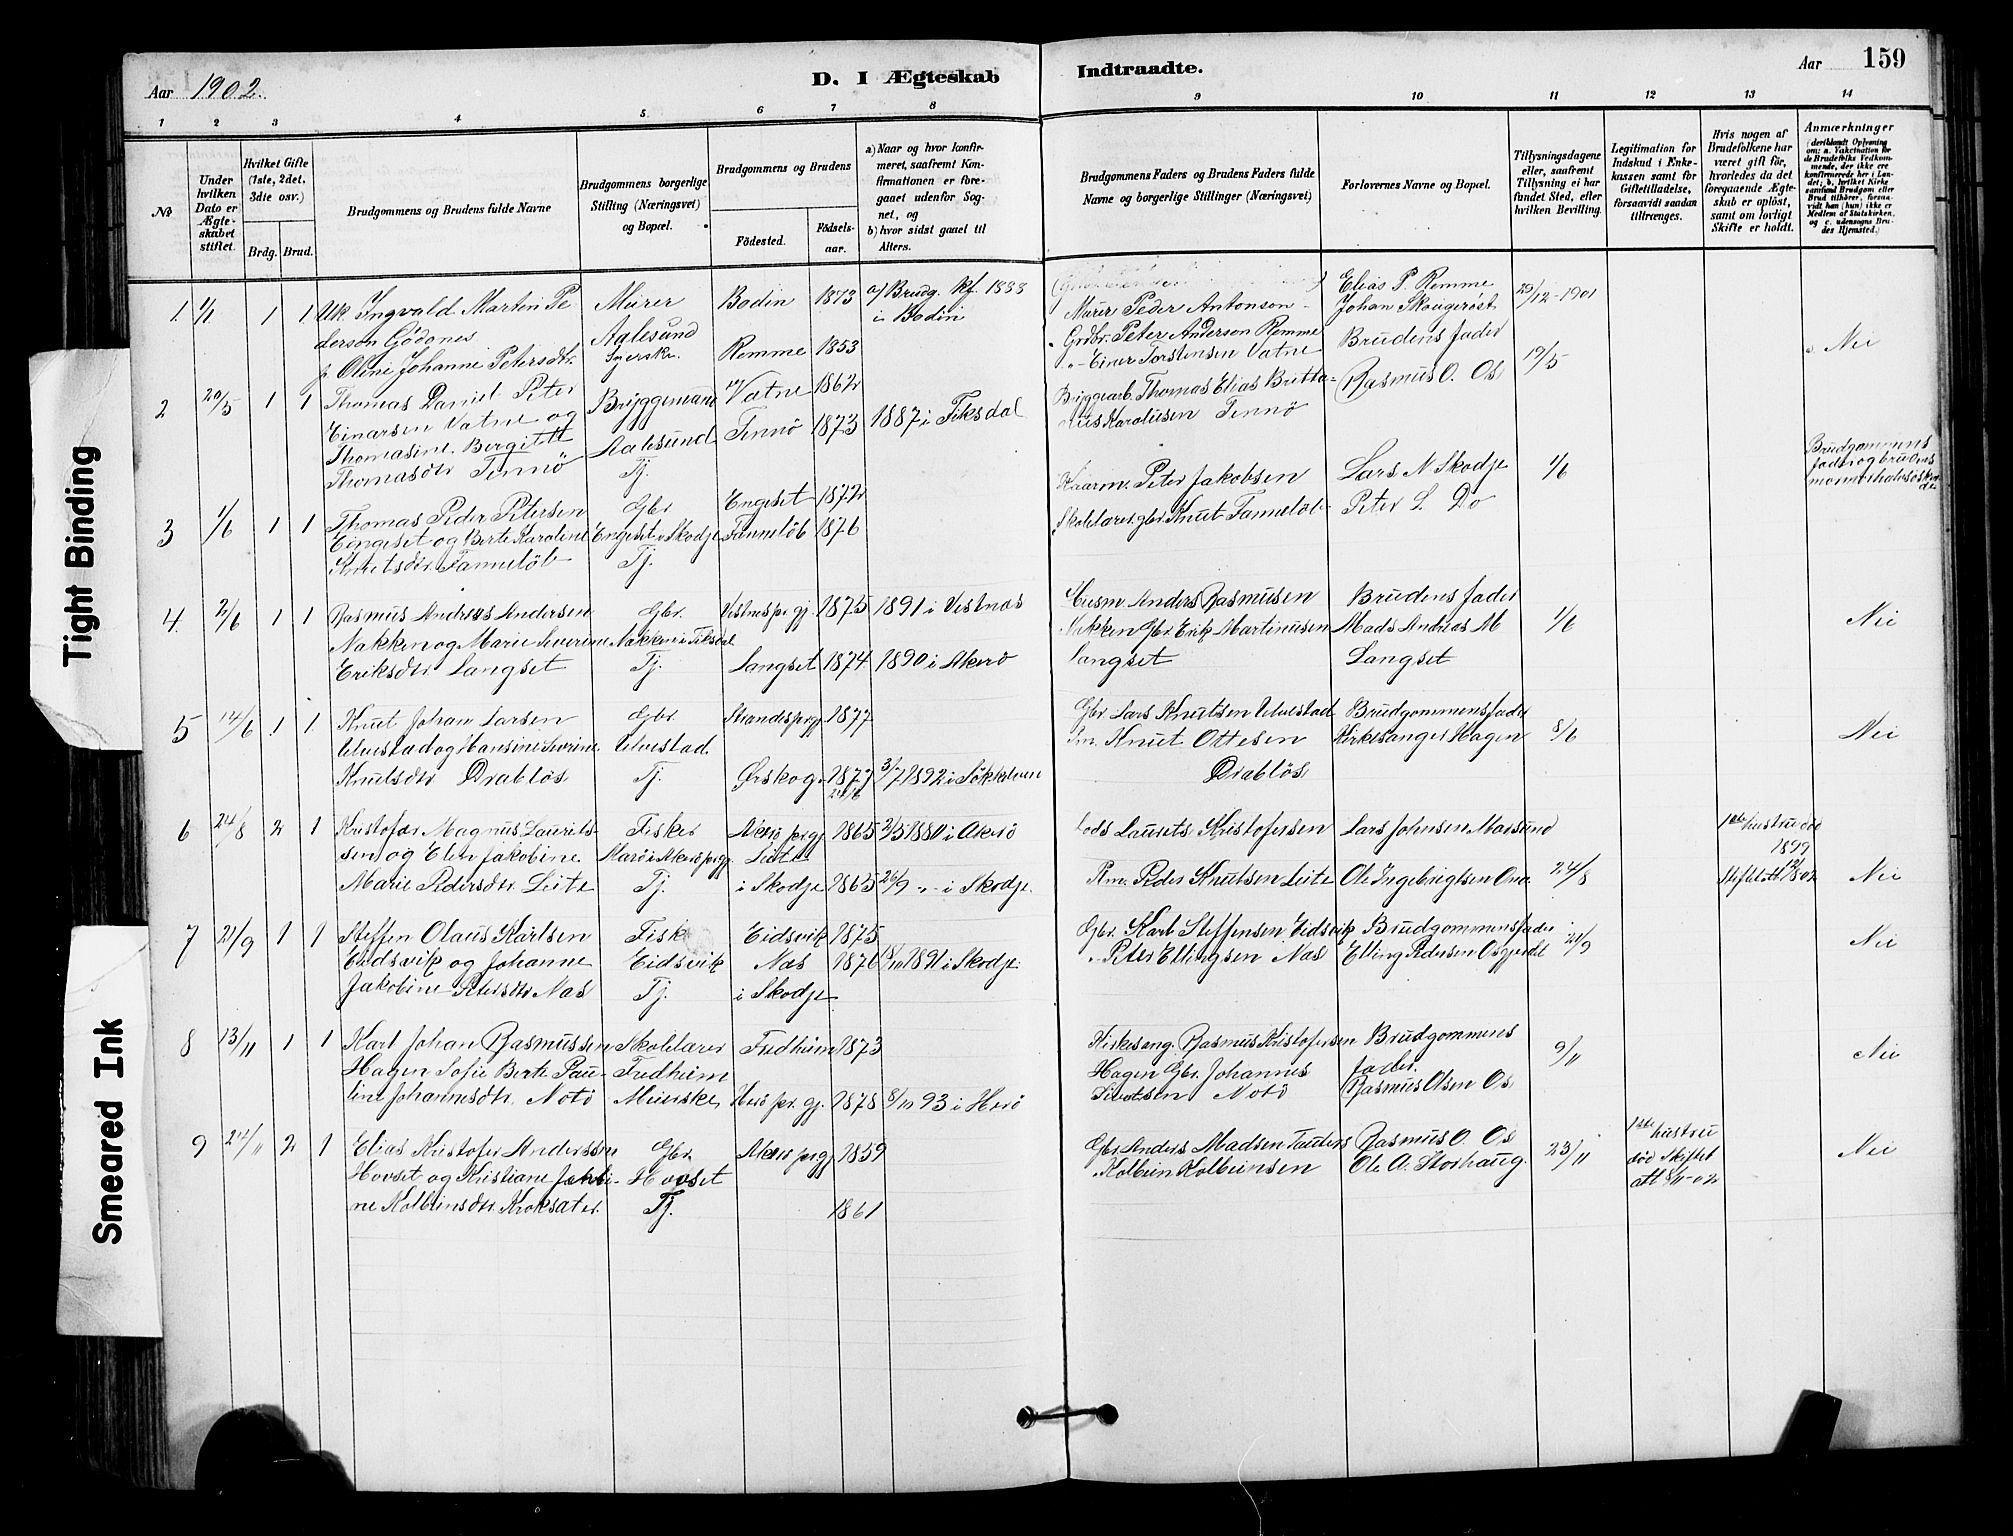 159
Aar 1902.
D. I Ægteskab
Indtraadte.
Aar
1 2 3 4 5 6 7 8
9 10 11 12 13 14
№
Under
hvilken
Dato er
Ægte-
skabet
stiftet.
Hvilket Gifte
(1ste, 2det,
3die osv.)
Brdg. Brud.
Brudgommens og Brudens fulde Navne
Brudgommens borgerlige
Stilling (Næringsvei)
og Bopæl.
Brudgommens og Brudens
Fødested.
Fødsels-
aar.
a) Naar og hvor konfir-
meret, saafremt Kon-
firmationen er fore-
gaaet udenfor Sog-
net, og
b) hvor sidst gaaet til
Alters.
Brudgommens Faders og Brudens Faders fulde
Navne og borgerlige Stillinger (Næringsvei)
Forlovernes Navne og Bopæl.
Tillysningsdagene
eller, saafremt
Tillysning ei har
fundet Sted, efter
hvilken Bevilling.
Legitimation for
Indskud i Enke-
kassen samt for
Giftetilladelse,
forsaavidt saadan
tiltrænges.
Hvis nogen af
Brudefolkene har
været gift før,
hvorledes da det
foregaaende Ægte-
skab er opløst,
samt om lovligt
Skifte er holdt.
Anmærkninger
(deriblandt Oplysning
om: a. Vakcination for
de Brudefolks Vedkom-
mende, der ikke ere
konfirmerede her i Lan-
det; b. hvilket Kirke
samfund Brudgom eller
Brud tilhører, forsaa-
vidt han (hun) ikke er
Medlem af Statskirken,
og c. udensogns Bru-
des Hjemsted.)
1. 1/1 1 1 Uk. Ingvald Martin Pe
derson Godønes
p. Oline Johanne Petersdtr.
Murer
Aalesund
Syerske.
Bodin 1873
Remme 1853
a) Brudg. kf. 1888
i Bodin
Murer Peder Antonson
Grdbr. Peter Anderson Remme
Elias P. Remme
Johan Skougerøst
29/12-1901
Nei
2 20/5 1 1 Thomas Daniel Peter
Einarsen Vatne og
Thomasine Bergitte
Thomasdtr Tennö
Bryggemand
Aalesund
Tj.
Vatne 1862
Tennö 1873
1887 i Fiksdal
Einer Torstensen Vatne
Bryggearb. Thomas Elias Britta-
nus Karolusen Tennö
Brudens fader
Rasmus O. Os
19/5
3 1/6 1 1 Thomas Peder Petersen
Engeset og Berte Karoline
Knutsdtr. Fammelöb
Gbr.
Engeset i Skodje
Tj.
Engeset 1872
Fammelöb 1876
Kaarm. Peter Jakobsen
Skolelærer gbr. Knut Fammelöb
Lars N Skodje
Peter L. Do
1/6
Brudgommens
fader og brudens
mor
4. 21/6 1 1 Rasmus Andreas Andersen
Nakken og Marie Severine
Eriksdtr Langset
Gbr.
Nakken i Fiksdal
Tj.
Vestnes prgj. 1875
Langset 1874
1891 i Vestnæs
1890 i Akerö
Husm. Anders Rasmusen
Nakken Gbr. Erik Martinusen
Langset
Brudens fader
Mads Andreas M
Langset
1/6
Nei
5 14/6 1 1 Knut Johan Larsen
Ulvestad og Hansine Severine
Knutsdtr Drabløs
Gbr.
Ulvestad.
Tj.
Strandes prgj 1877
Ørskog 1877
3/7 1892 i Søkkelven
Gbr. Lars Knutsen Ulvestad
Knut Ottesen
Drabløs
Brudgommens fader
Kirkesanger Hagen
8/6
Nei
6 24/8 2 1 Kristofer Magnus Laurits-
sen og Elen Jakobine
Marie Pedersdtr Leite
Fisker
Marö i Akerö prgj.
Tj.
Akerö prgj 1865
Leite
i Skodje 1865
2/5 1880 i Akerö
26/9 - " - i Skodje.
Lods Laurets Kristofersen
Peder Knutsen Leite
Lars Johnsen Morsund
Ole Ingebrigtsen Ona
24/8
1ste hustru død
1899
Nei
7 21/9 1 1 Steffen Olaus Karlsen
Eidsvik og Johanne
Jakobine Petersdtr Næs
Fisk
Eidsvik
Tj.
Eidsvik 1875
Næs 1876
i Skodje
1891 i Skodje
Gbr. Karl Steffensen Eidsvik
" Peter Ellingsen Næs
Brudgommens fader
Elling Pedersen Osgjerdet
21/9
Nei
8 13/11 1 1 Karl Johan Rasmussen
Hagen Sofie Berte Pau-
line Johannesdtr. Notö
Skolelærer
Fredheim
Meierske
Fredheim 1873
Herö pr.gj. 1878
8/10 93 i Herö
Kirkesang. Rasmus Kristofersen
Hagen Gbr. Johannes
Sivertsen Notö
Brudgommens
fader.
Rasmus Olsen Os
9/11
Nei
9 24/11 2 1 Elias Kristofer Anderssen
Hovset og Kristiane Jakobi-
ne Kolbeinsdtr. Kroksæter
Gbr.
Hovset
Tj.
Akerö prgj 1859
1861
Gbr. Anders Madsen Tautero
" Kolbein Kolbeinsen
Rasmus O. Os
Ole A. Storhaug
23/11
1ste hustru
død Skifteb
att 8/11-02
Nei
Tight Binding
Smeared Ink